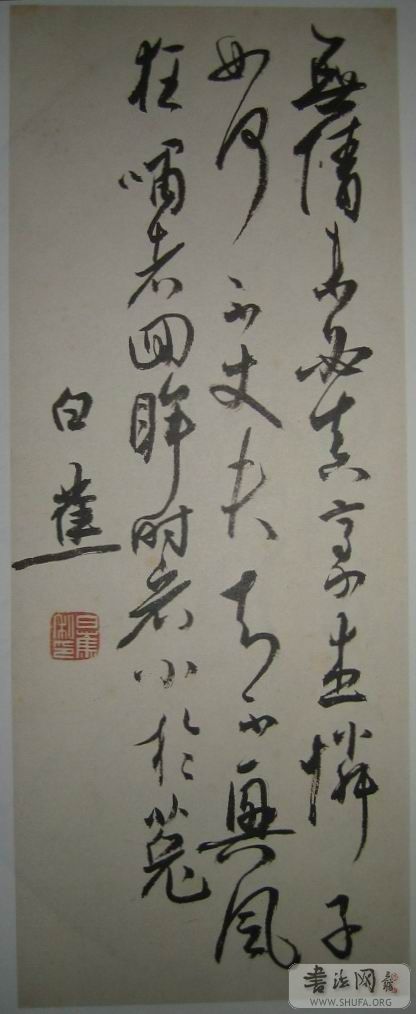 無情未必真豪杰憐子
如何不丈夫知不興風
狂嘯者回眸時看小於菟
白蕉
白蕉私印
书法网
WWW.SHUFA.ORG